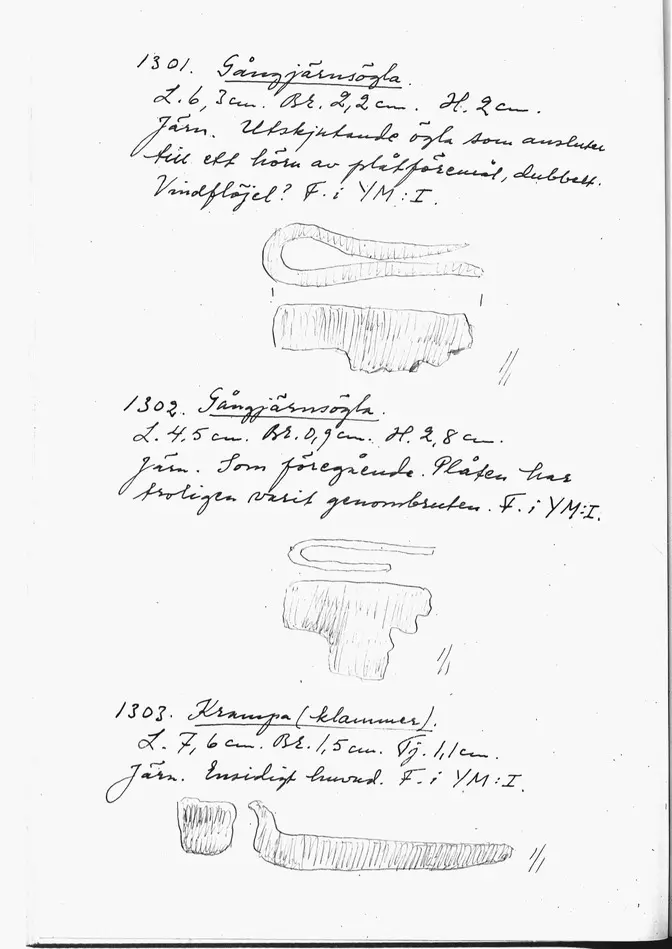 1301. Gångjärnsögla.
L. 6,3cm. Br. 2,2cm. H. 2cm.
Järn. Utskjutande ögla som ansluter
till ett hörn av plåtföremål, dubbelt.
Vindflöjel? F. i YM:I.
1/1
1302. Gångjärnsögla.
L. 4,5cm. Br. 0,9cm. H. 2,8cm.
Järn. Som föregående. Plåten har
troligen varit genombruten. F. i YM:I.
1/1
1303. Krampa (klammer).
L. 7,6cm. Br. 1,5cm. Tj. 1,1cm.
Järn. Ensidigt huvud. F. i YM:I.
1/1